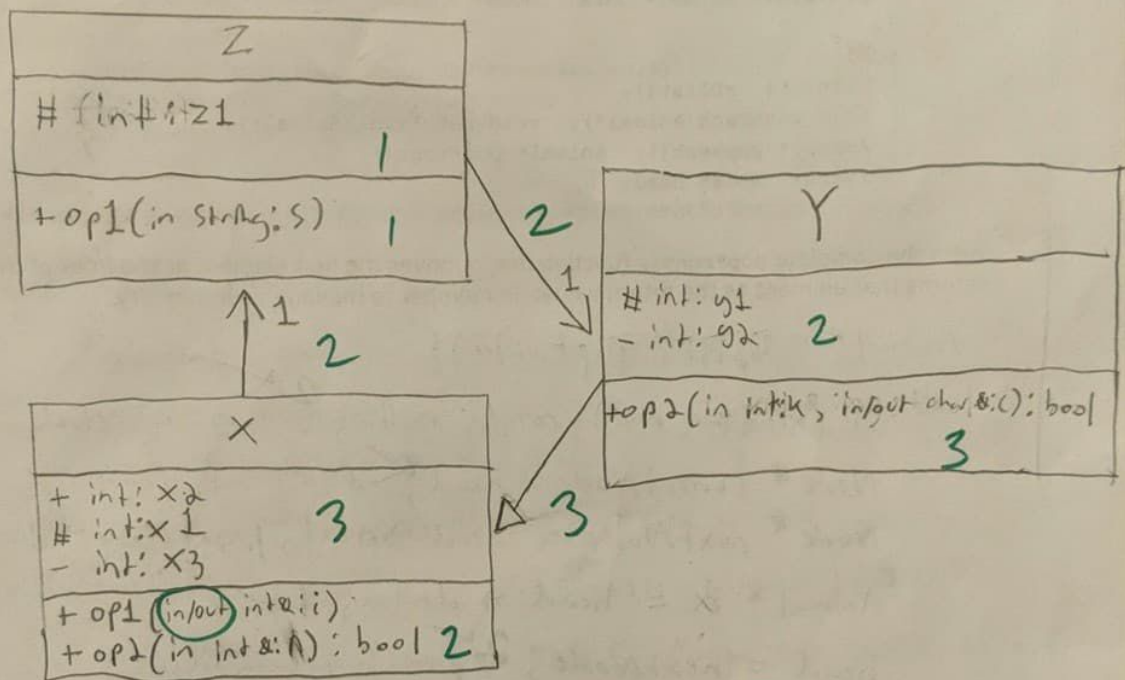 Z
# int: z1
1
+ op1(in string: s)
1
2
1
Y
# int: y1
- int: y2
2
+op2(in int:k, in/out char &:c): bool
3
1
2
3
X
+ int: x2
# int:x1
- int: x3
3
+ op1(in/out int&:i)
+ op2(in int &: ): bool
2